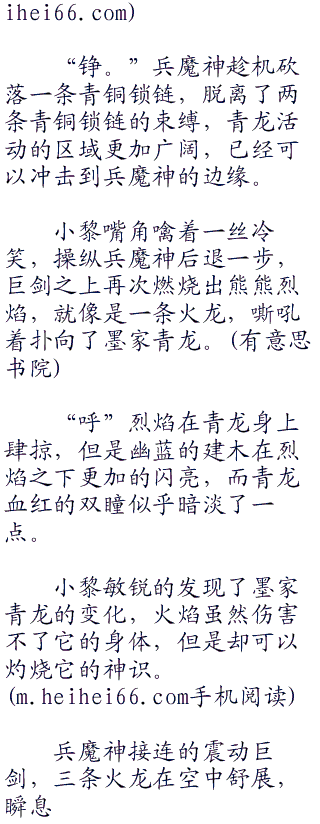 ihei66.com)
“铮。”兵魔神趁机砍
落一条青铜锁链，脱离了两
条青铜锁链的束缚，青龙活
动的区域更加广阔，已经可
以冲击到兵魔神的边缘。
小黎嘴角噙着一丝冷
笑，操纵兵魔神后退一步，
巨剑之上再次燃烧出熊熊烈
焰，就像是一条火龙，嘶吼
着扑向了墨家青龙。(有意思
书院)
“呼”烈焰在青龙身上
肆掠，但是幽蓝的建木在烈
焰之下更加的闪亮，而青龙
血红的双瞳似乎暗淡了一
点。
小黎敏锐的发现了墨家
青龙的变化，火焰虽然伤害
不了它的身体，但是却可以
灼烧它的神识。
(m.heihei66.com手机阅读)
兵魔神接连的震动巨
剑，三条火龙在空中舒展，
瞬息